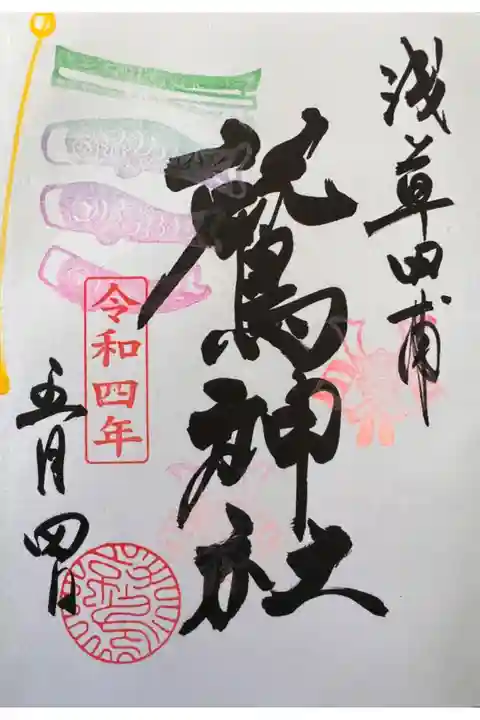 浅草田甫
鷲神社
令和四年
五月四日